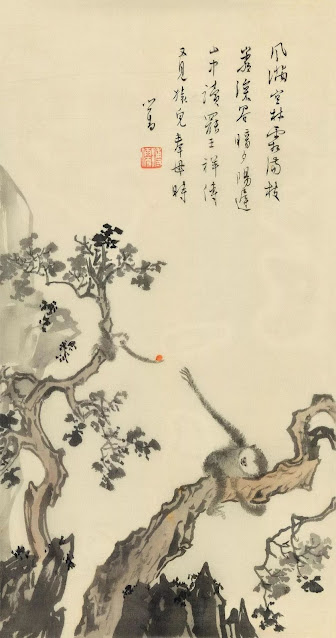 風滿空林滿枝
巖深谷暗夕陽遲
山中讀罷王祥傳
又見猿兒奉母時
心畬